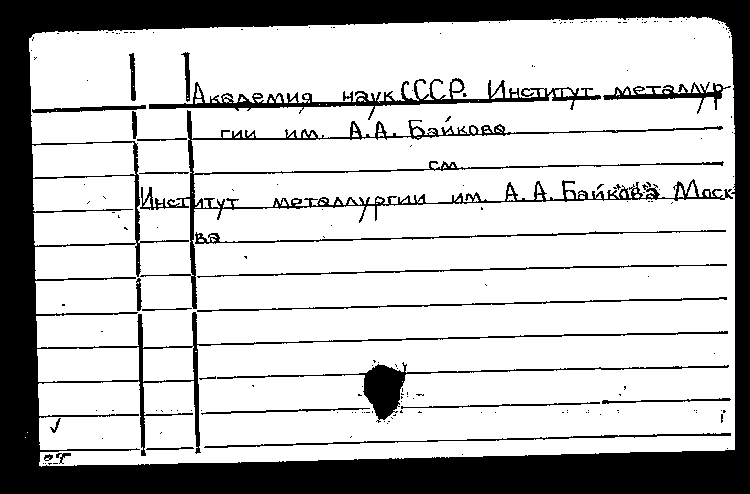 Академия наук СССР. Институт металлур-
гии им. А.А. Байкова
см.
Институт металлургии им. А.А. Байкова Моск-
ва